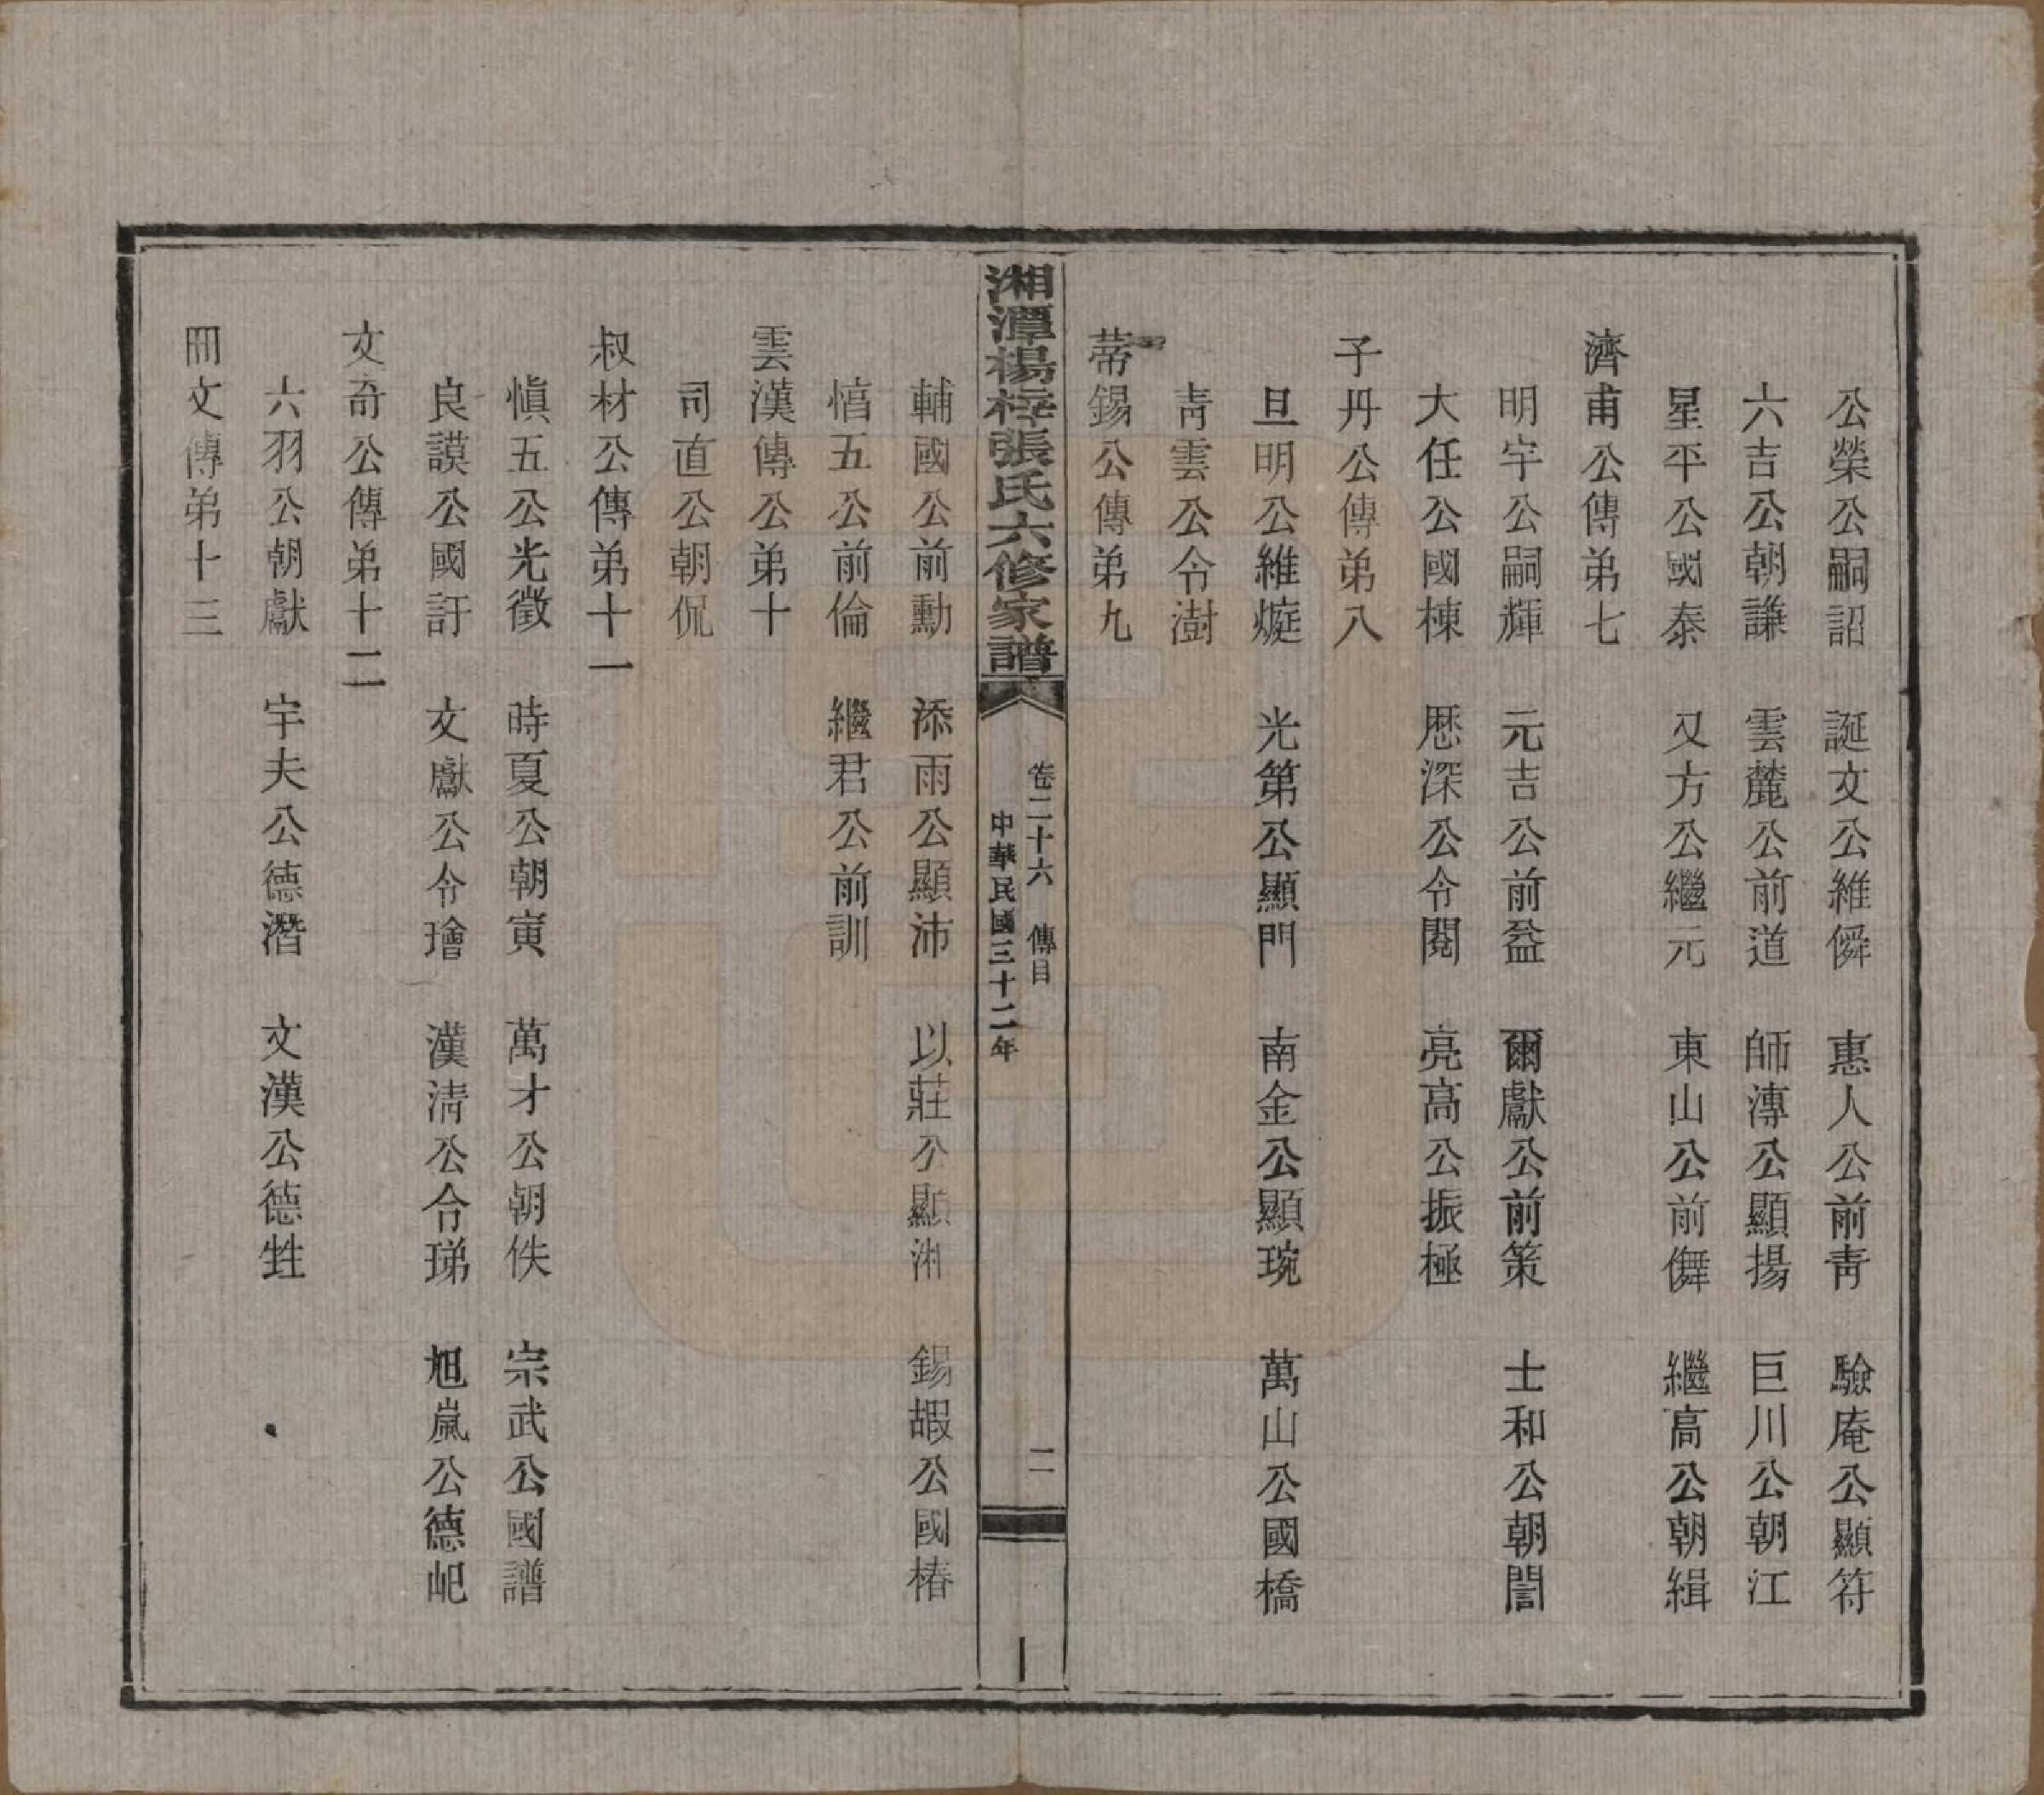 公榮公嗣詔　誕文公維僢　惠人公前靑　驗庵公顯符
六吉公朝謙　雲麓公前道　師漙公顯揚　巨川公朝江
星平公國泰　又方公繼元　東山公前儛　繼高公朝緝
濟甫公傳弟七
明宇公嗣輝　元吉公前益　爾獻公前策　士和公朝誾
大任公國棟　歴深公令閱　亮高公振極
子丹公傳弟八
旦明公維𤊶　光第公顯門　南金公顯琬　萬山公國橋
靑雲公令澍
蒂錫公傳弟九
湘潭楊梓張氏六修家譜
卷二十六　傳目　二
中華民國三十二年
輔國公前勳　添雨公顯沛　以莊公顯湘　錫嘏公國椿
愭五公前倫　繼君公前訓
雲漢傳公弟十
司直公朝侃
叔材公傳弟十一
愼五公光徵　時夏公朝寅　萬才公朝佚　宗武公國譜
良謨公國訏　文獻公令璯　漢淸公令珶　旭嵐公德屺
文奇公傳弟十二
六羽公朝獻　宇夫公德潛　文漢公德甡
冊文傳弟十三